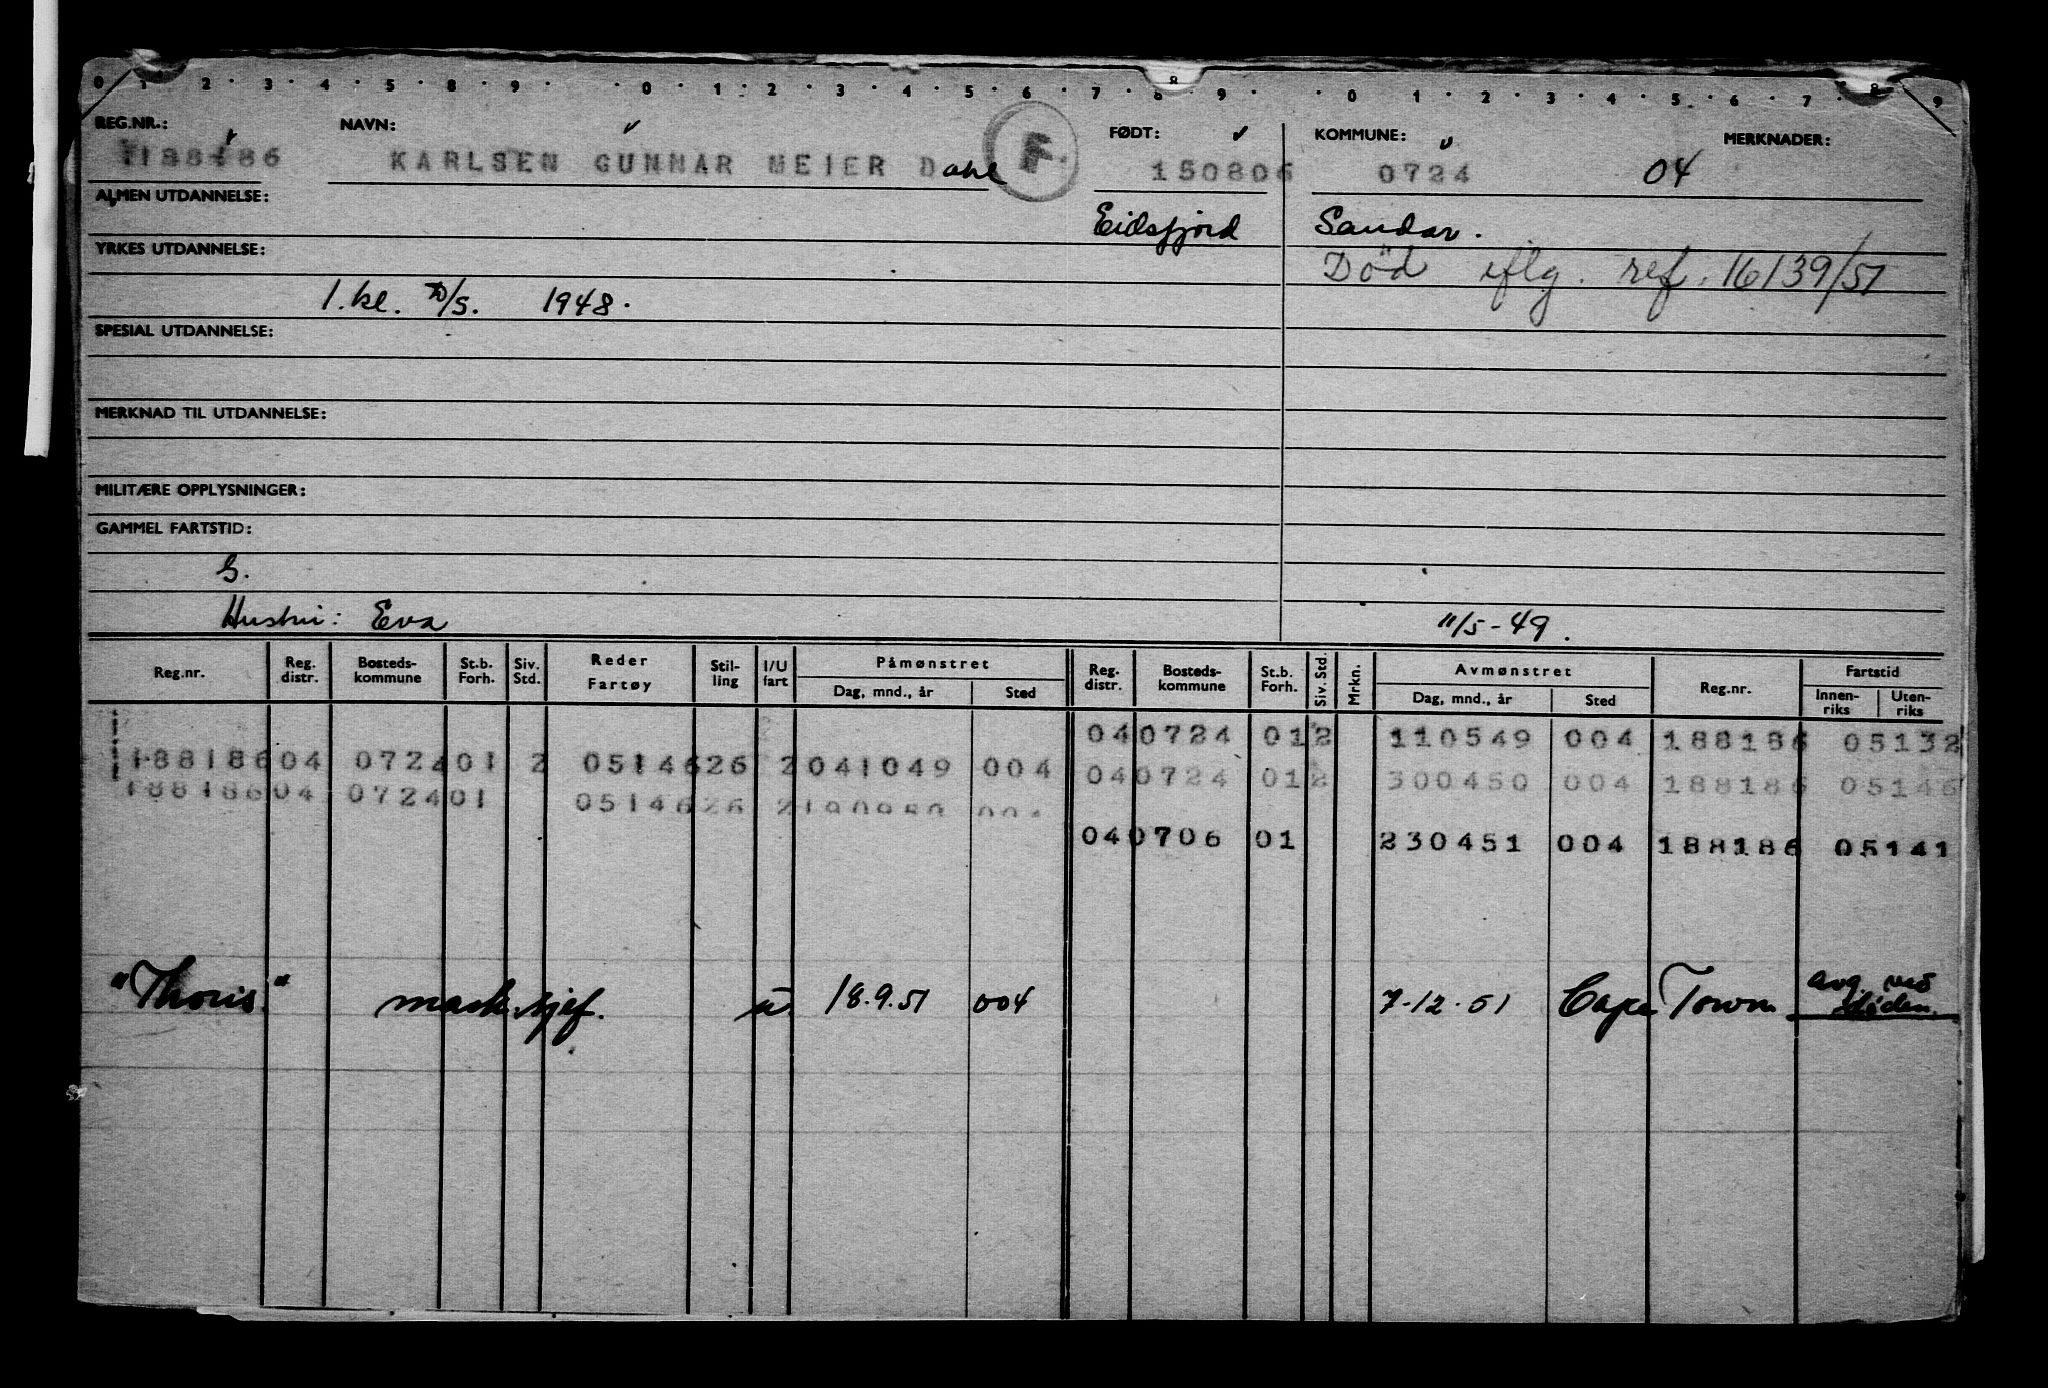 0 1 2 3 4 5 8 9 0 1 2 3 4 5 6 7 8 9 0 1 2 3 4 5 6 7 8 9
REG.NR.: NAVN: FØDT: KOMMUNE: MERKNADER:
188186 KARLSEN GUNNAR MEIER Dahl F 150806 0724 04
ALMEN UTDANNELSE:
Eidsfjord Sandar.
YRKES UTDANNELSE:
Død iflg. ref. 16139/51
1. kl. D/S. 1948.
SPESIAL UTDANNELSE:
MERKNAD TIL UTDANNELSE:
MILITÆRE OPPLYSNINGER:
GAMMEL FARTSTID:
G.
Hustru: Eva 11/5-49.
Reg.nr. Reg. distr. Bosteds-kommune St.b. Forh. Siv. Std. Reder Fartøy Stil-ling I/U fart Påmønstret Dag, mnd., år Sted Reg. distr. Bosteds-kommune St.b. Forh. Siv. Std. Mrkn. Avmønstret Dag, mnd., år Sted Reg.nr. Fartstid Innen-riks Uten-riks
04 0724 01 2 110549 004 188186 05132
188186 04 0724 01 2 05146 26 2 041049 004 04 0724 01 2 300450 004 188186 05146
188186 04 0724 01 05146 26 2 190950 004
04 0706 01 230451 004 188186 05141
"Thoris" mask.sjef. u 18.9.51 004 7-12-51 Cape Town avg. ved døden.